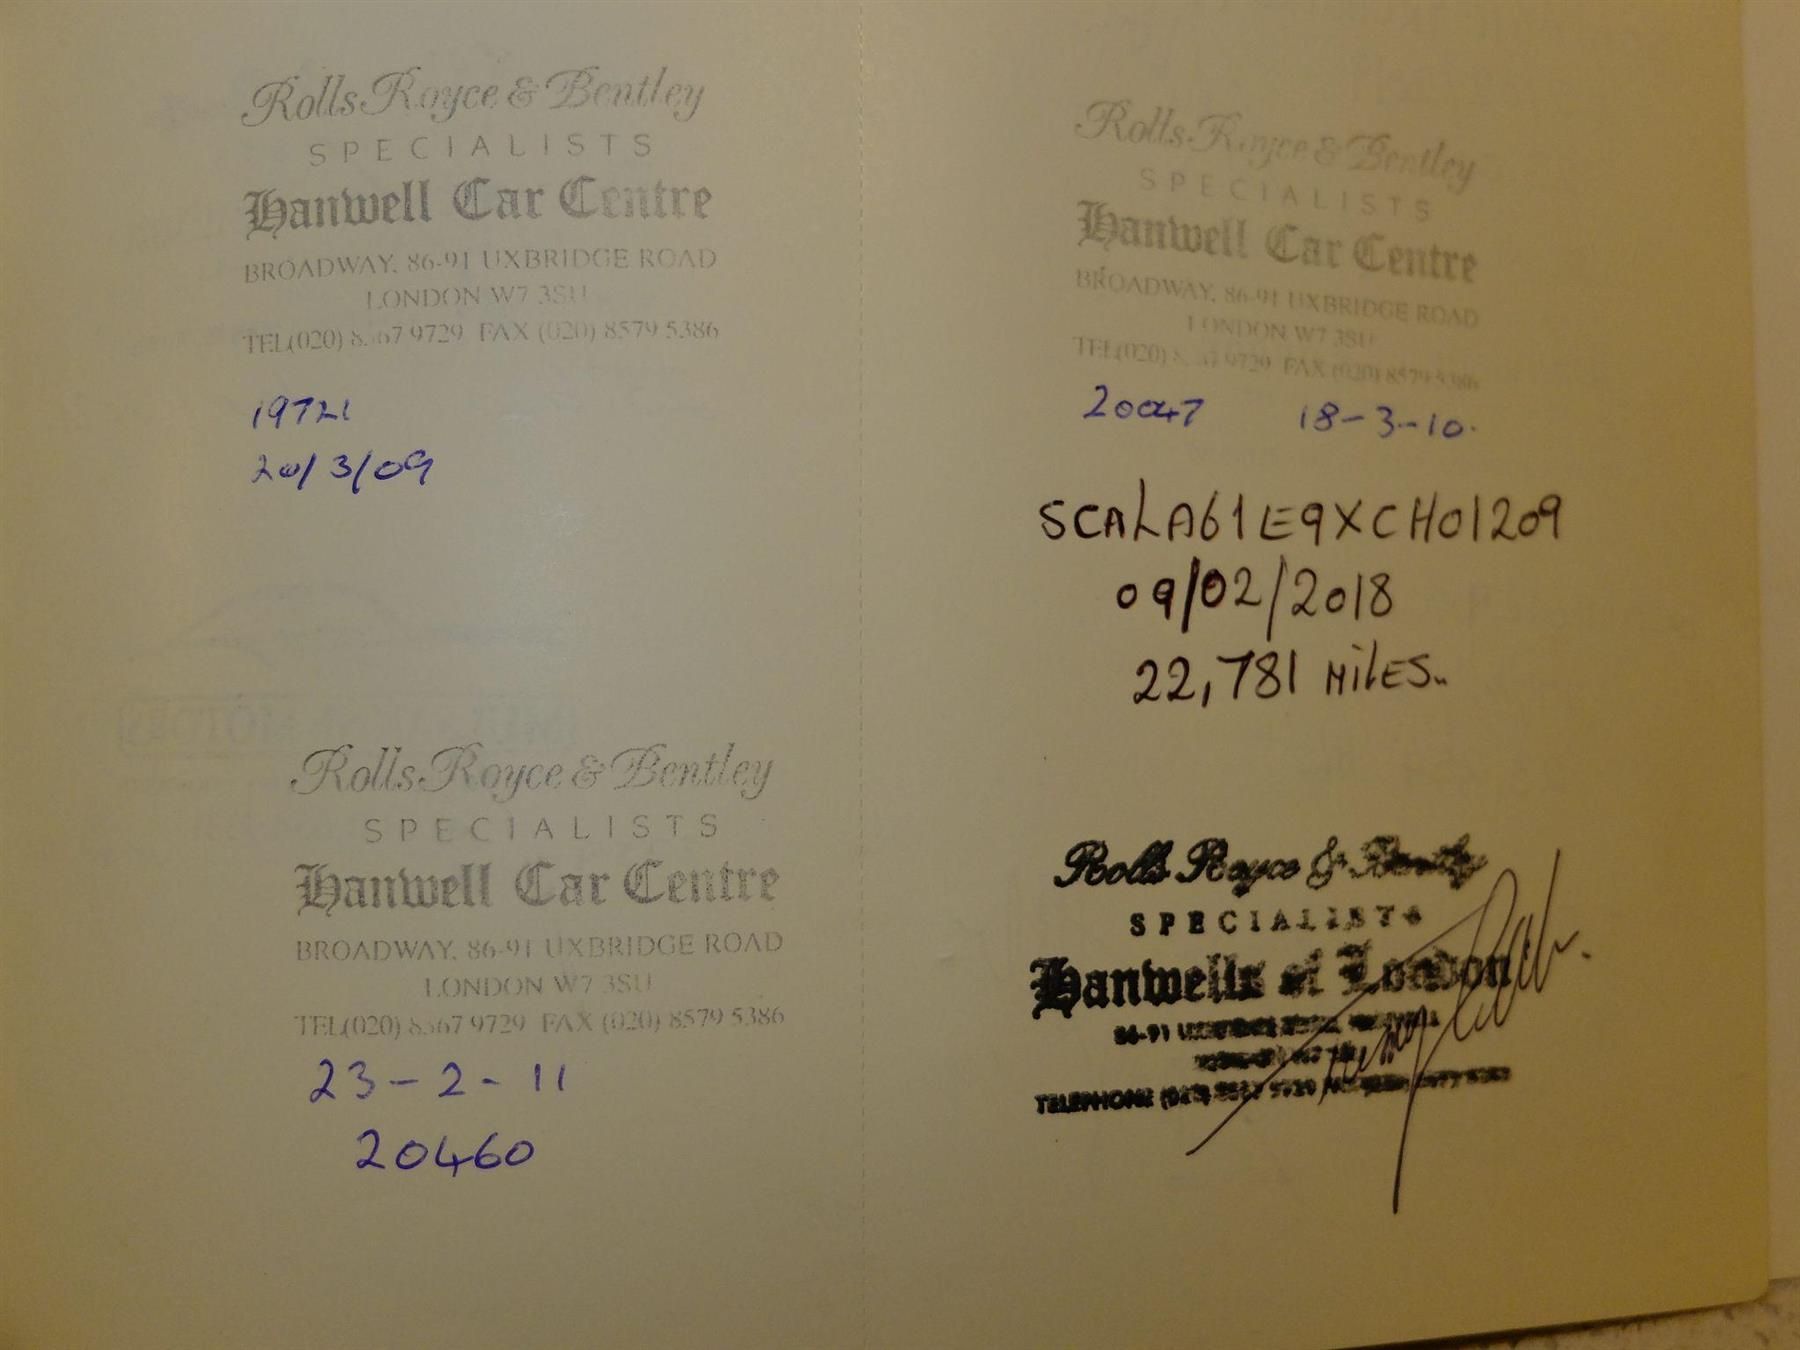 Rolls-Royce & Bentley
SPECIALISTS
Hanwell Car Centre
BROADWAY, 86-91 UXBRIDGE ROAD
LONDON W7 3SU
TEL(020) 8567 9729 FAX (020) 8579 5386
19721
20/3/09
Rolls-Royce & Bentley
SPECIALISTS
Hanwell Car Centre
BROADWAY, 86-91 UXBRIDGE ROAD
LONDON W7 3SU
TEL(020) 8567 9729 FAX (020) 8579 5386
23-2-11
20460
Rolls-Royce & Bentley
SPECIALISTS
Hanwell Car Centre
BROADWAY, 86-91 UXBRIDGE ROAD
LONDON W7 3SU
TEL(020) 8567 9729 FAX (020) 8579 5386
20047 18-3-10.
SCALA61E9XCH01209
09/02/2018
22,781 MILES..
Rolls Royce & Bentley
SPECIALISTS
Hanwells of London
86-91 UXBRIDGE ROAD, HANWELL
TELEPHONE (020) 8567 9729